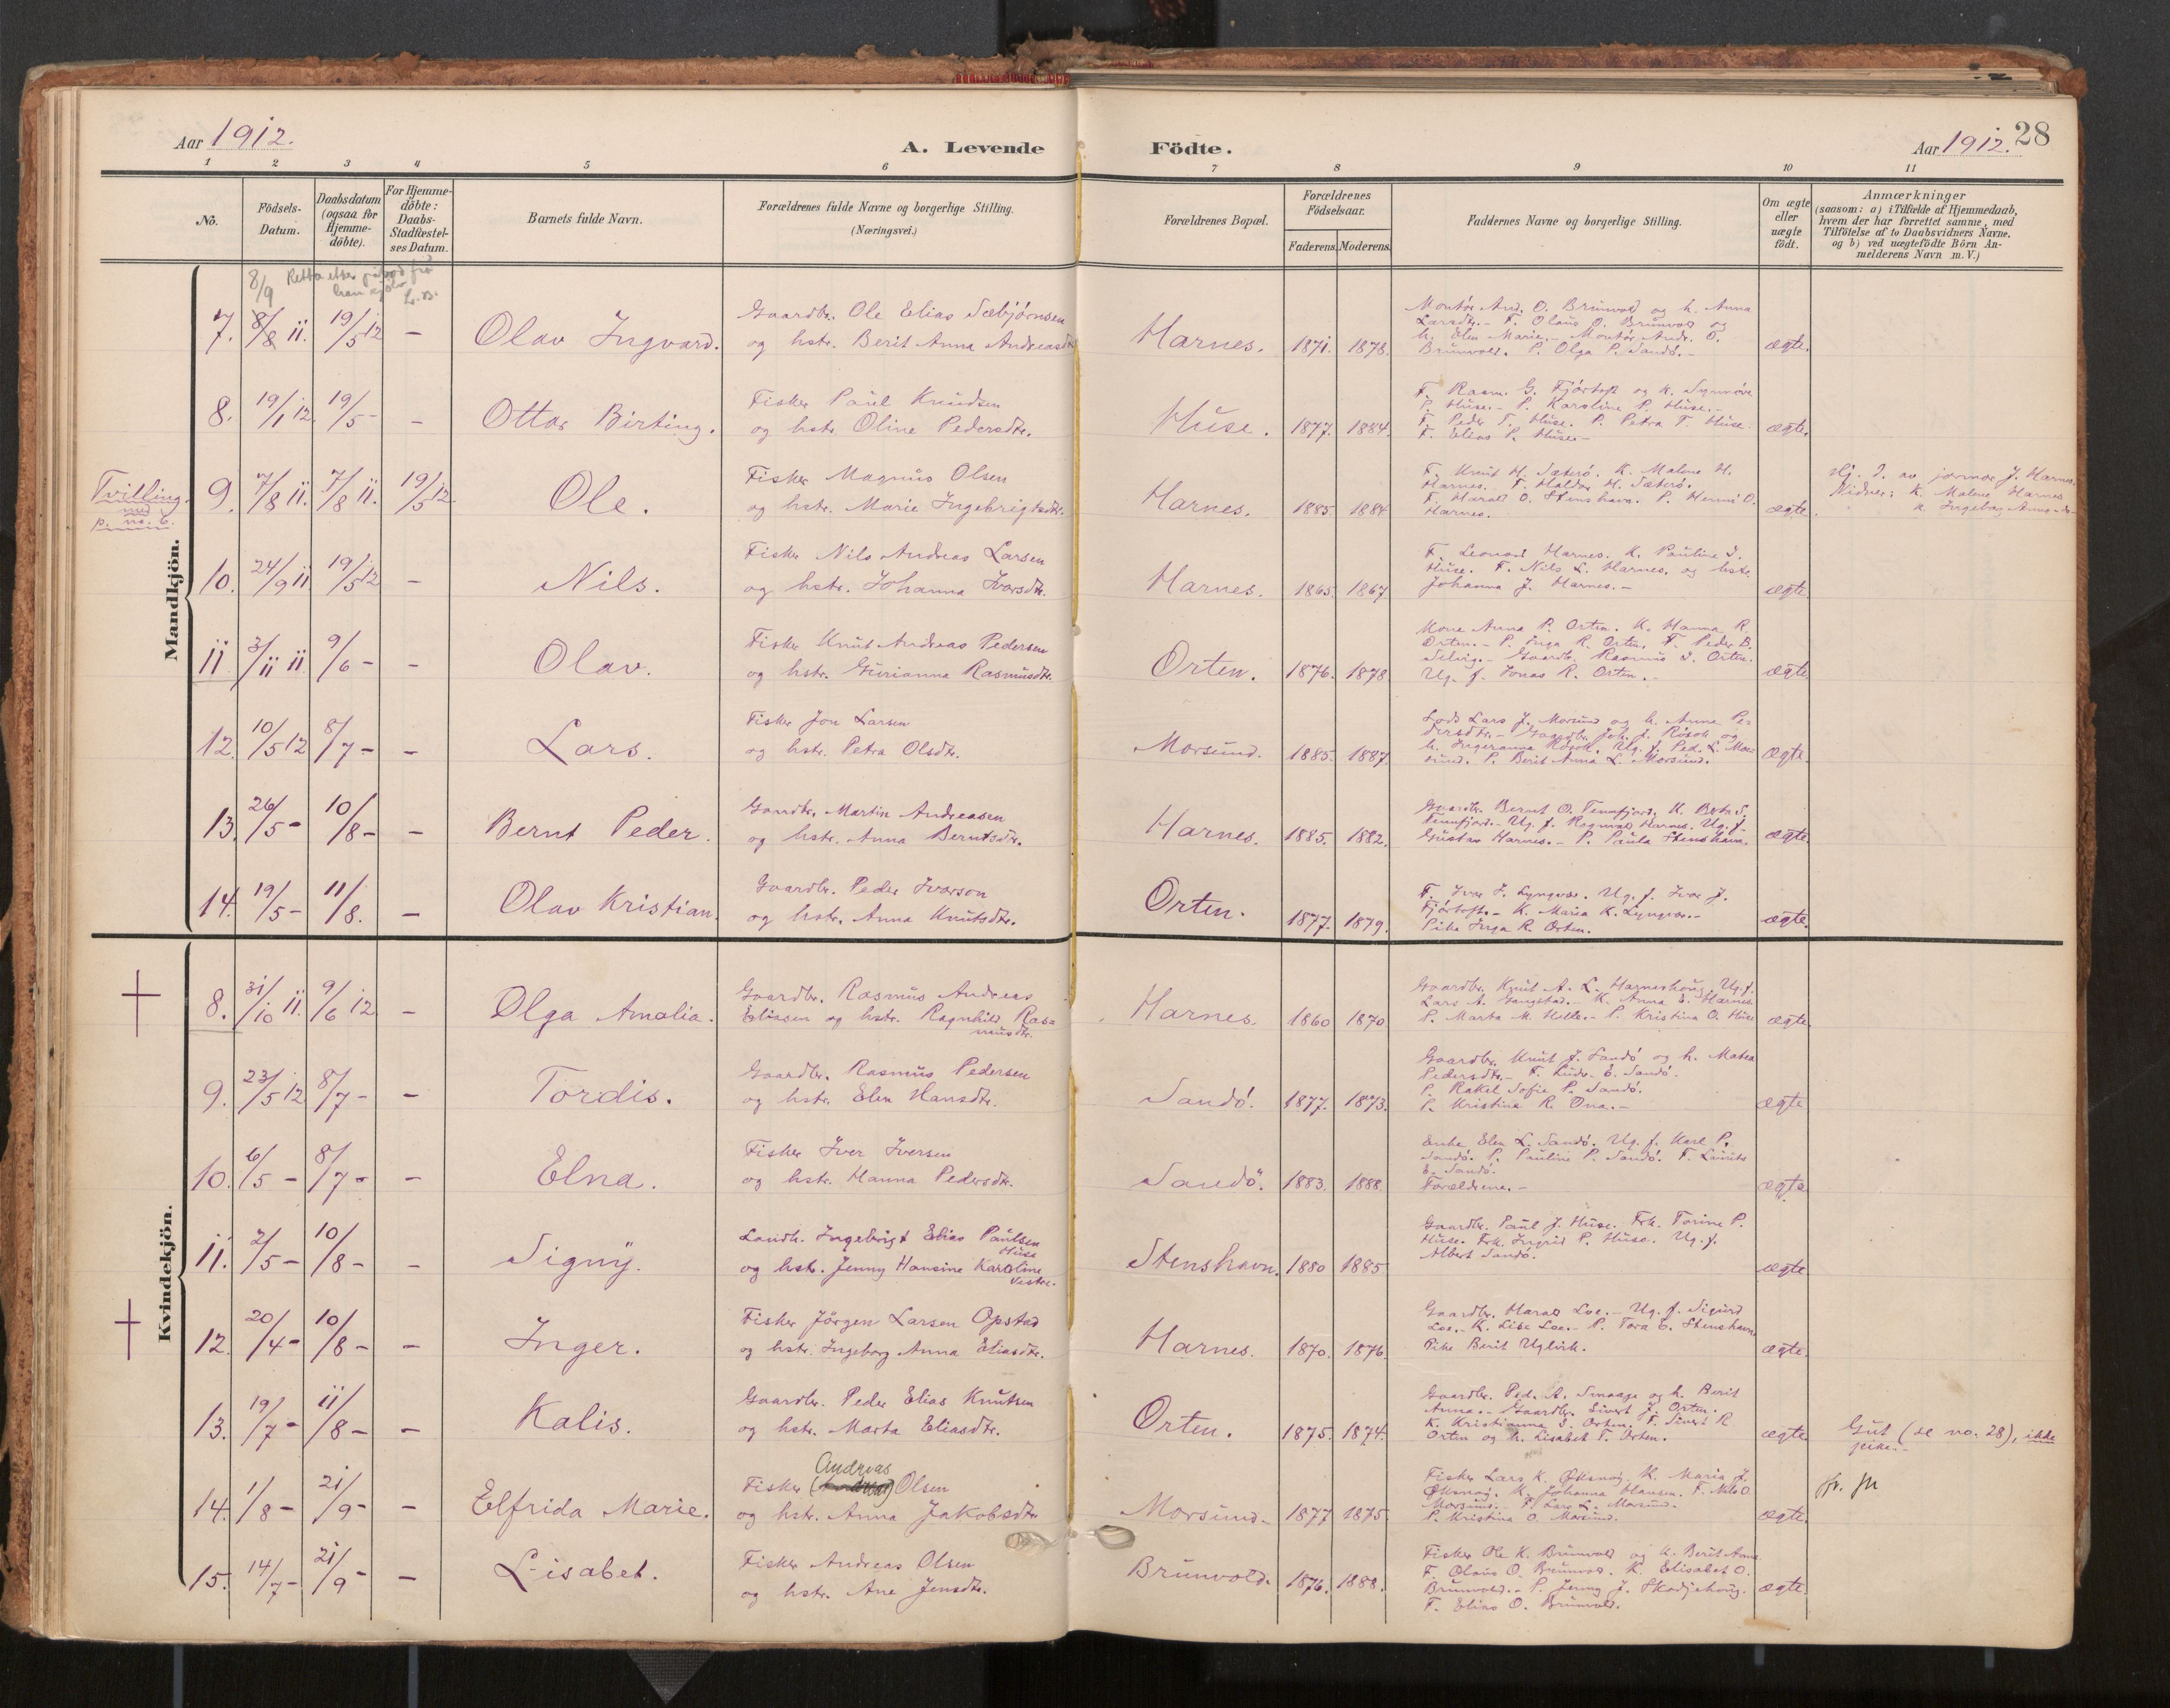 Aar 1912.
A. Levende
Födte.
Aar 1912. 28
1 2 3 4 5 6 7 8 9 10 11
No.
Födsels-
Datum.
Daabsdatum
(ogsaa for
Hjemme-
döbte).
For Hjemme-
döbte:
Daabs-
Stadfæstel-
ses Datum.
Barnets fulde Navn.
Forældrenes fulde Navne og borgerlige Stilling.
(Næringsvei.)
Forældrenes Bopæl.
Forældrenes
Födselsaar.
Faderens. Moderens.
Faddernes Navne og borgerlige Stilling.
Om ægte
eller
uægte
födt.
Anmærkninger
(saasom: a) i Tilfælde af Hjemmedaab,
hvem der har forrettet samme, med
Tilföielse af to Daabsvidners Navne.
og b) ved uægtefödte Börn An-
melderens Navn m. V.)
Mandkjön.
8/9 Retta etter
7. 8/8 11. 19/5 12 – Olav Ingvard.
Gaardbr. Ole Elias Sæbjörnsen
og hstr. Berit Anna Andreasdtr.
Harnes. 1871. 1878.
Montör And. O. Brunvold og h. Anna
Larsdtr. – F. Olaus O. Brunvold og
h. Elen Marie. – Montör Andr. O.
Brunvold. P. Olga P. Sandö. –
ægte.
8. 19/1 12 19/5 – – Ottar Birting.
Fisker Paul Knudsen
og hstr. Oline Pedersdtr.
Huse. 1877. 1884.
F. Rasm. G. Fjörtoft og K. Synnöve
P. Huse. – P. Karoline P. Huse. –
F. Peder T. Huse. P. Petra T. Huse.
F. Elias P. Huse. –
ægte.
Tvilling
med
p. no. 6.
9. 7/8 11. 7/8 11. 19/5 12. Ole.
Fisker Magnus Olsen
og hstr. Marie Ingebrigtsdtr.
Harnes. 1885. 1884.
F. Knut H. Sæterö. K. Malene H.
Harnes. F. Haldor H. Sæterö.
F. Harald O. Stenshavn. P. O.
Harnes.
ægte.
Hj. d. av jormor J. Harnes.
Vidner: K. Malene Harnes
K. Ingeborg Anna –do–
10. 24/9 11 19/5 12 – Nils.
Fisker Nils Andreas Larsen
og hstr. Johanna Ivarsdtr.
Harnes. 1865. 1867
F. Leonard Harnes. K. Pauline I.
Huse. F. Nils L. Harnes. og hstr.
Johanna J. Harnes. –
ægte.
11 3/11 11 9/6 – – Olav.
Fisker Knut Andreas Pedersen
og hstr. Gurianna Rasmusdtr.
Orten. 1876. 1878
Kone Anna P. Orten. K. Hanna R.
Orten. – P. Inga R. Orten. F. Peder B.
Gaardbr. Rasmus I. Orten.
Ug. f. Jonas R. Orten. –
ægte.
12. 10/5 12 8/7 – – Lars.
Fisker Jon Larsen
og hstr. Petra Olsdtr.
Morsund. 1885. 1887.
Lods Lars J. Morsund og h. Anna Pe=
dersdtr. – Gaardbr. Joh. J. Rösok og
h. Ingeranna Rösok. Ug. f. Ped. L. Mor=
sund. P. Berit Anna L. Morsund.
ægte.
13. 26/5 – 10/8 – – Bernt Peder.
Gaardbr. Martin Andreasen
og hstr. Anna Berntsdtr.
Harnes. 1885. 1882.
Gaardbr. Bernt O. Tennfjord. K. Berta S.
Tennfjord. – Ug. f. Ragnvald Harnes. Ug. f.
Gustav Harnes. – P. Paula Stenshavn.
ægte.
14. 19/5 – 11/8. – Olav Kristian.
Gaardbr. Peder Ivarson
og hstr. Anna Knutsdtr.
Orten. 1877. 1879.
F. Ivar J. Lyngvær. Ug. f. Ivar J.
Fjörtoft. – K. Maria K. Lyngvær. –
Pike Inga R. Orten.
ægte.
Kvindekjön.
8. 31/10 11. 9/6 12. – Olga Amalia.
Gaardbr. Rasmus Andreas
Eliasen og hstr. Ragnhild Ras=
musdtr.
Harnes. 1860 1870
Gaardbr. Knut A. L. Harneshaug. Ug. f.
Lars A. Gangstad. – K. Anna E. Harnes.
P. Marta M. Hille. – P. Kristina O. Huse
ægte.
9. 23/5 12 8/7 – – Tordis.
Gaardbr. Rasmus Pedersen
og hstr. Elen Hansdtr.
Sandö. 1877. 1873.
Gaardbr. Knut J. Sandö og h. Matea
Pedersdtr. – F. Ludv. E. Sandö.
P. Rakel Sofie P. Sandö.
P. Kristine R. Ona. –
ægte
10. 6/5 – 8/7 – – Elna.
Fisker Iver Iversen
og hstr. Hanna Pedersdtr.
Sandö. 1883. 1888.
Enke Elen L. Sandö. Ug. f. Karl P.
Sandö. P. Pauline P. Sandö. F. Laurits
E. Sandö.
Forældrene. –
ægte
11. 2/5 – 10/8 – – Signy.
Landh. Ingebrigt Elias Paulsen
Huse
og hstr. Jenny Hansine Karoline
Vestre.
Stenshavn. 1880 1885
Gaardbr. Paul J. Huse. Frk. Torine P.
Huse. Frk. Ingrid P. Huse. Ug. f.
Albert Sandö.
ægte
12. 20/4 – 10/8 – – Inger.
Fisker Jörgen Larsen Opstad
og hstr. Ingeborg Anna Eliasdtr.
Harnes. 1870. 1876.
Gaardbr. Harald Loe. – Ug. f. Sigurd
Loe. – K. Lise Loe. – P. Tora E. Stenshavn.
Pike Berit Uglvik.
ægte.
13. 19/7 – 11/8 – – Kalis.
Gaardbr. Peder Elias Knutsen
og hstr. Marta Eliasdtr.
Orten. 1875. 1874.
Gaardbr. Ped. A. Smaage og h. Berit
Anna. – Gaardbr. Sivert J. Orten.
K. Kristianna S. Orten. F. Sivert R.
Orten og h. Lisabet T. Orten.
ægte
Gut (se no. 28), ikke
pike. –
14. 1/8 – 21/9 – – Elfrida Marie.
Andreas
Fisker Olsen
og hstr. Anna Jakobsdtr
Morsund – 1877 1875.
Fisker Lars K. Öksnöy. K. Maria J.
Öksnöy. K. Johanna Hansen. F. Nils O.
Morsund. – F. Lars L. Morsund.
P. Kristina O. Morsund.
ægte.
15. 14/7 – 21/9 – – Lisabet.
Fisker Andreas Olsen
og hstr. Ane Jensdtr.
Brunvold. 1876. 1888.
Fisker Ole K. Brunvold og K. Berit Anna.
F. Olaus O. Brunvold. K. Elisabet O.
Brunvold. – P. Jenny J. Skadjehaug.
F. Elias O. Brunvold.
ægte.